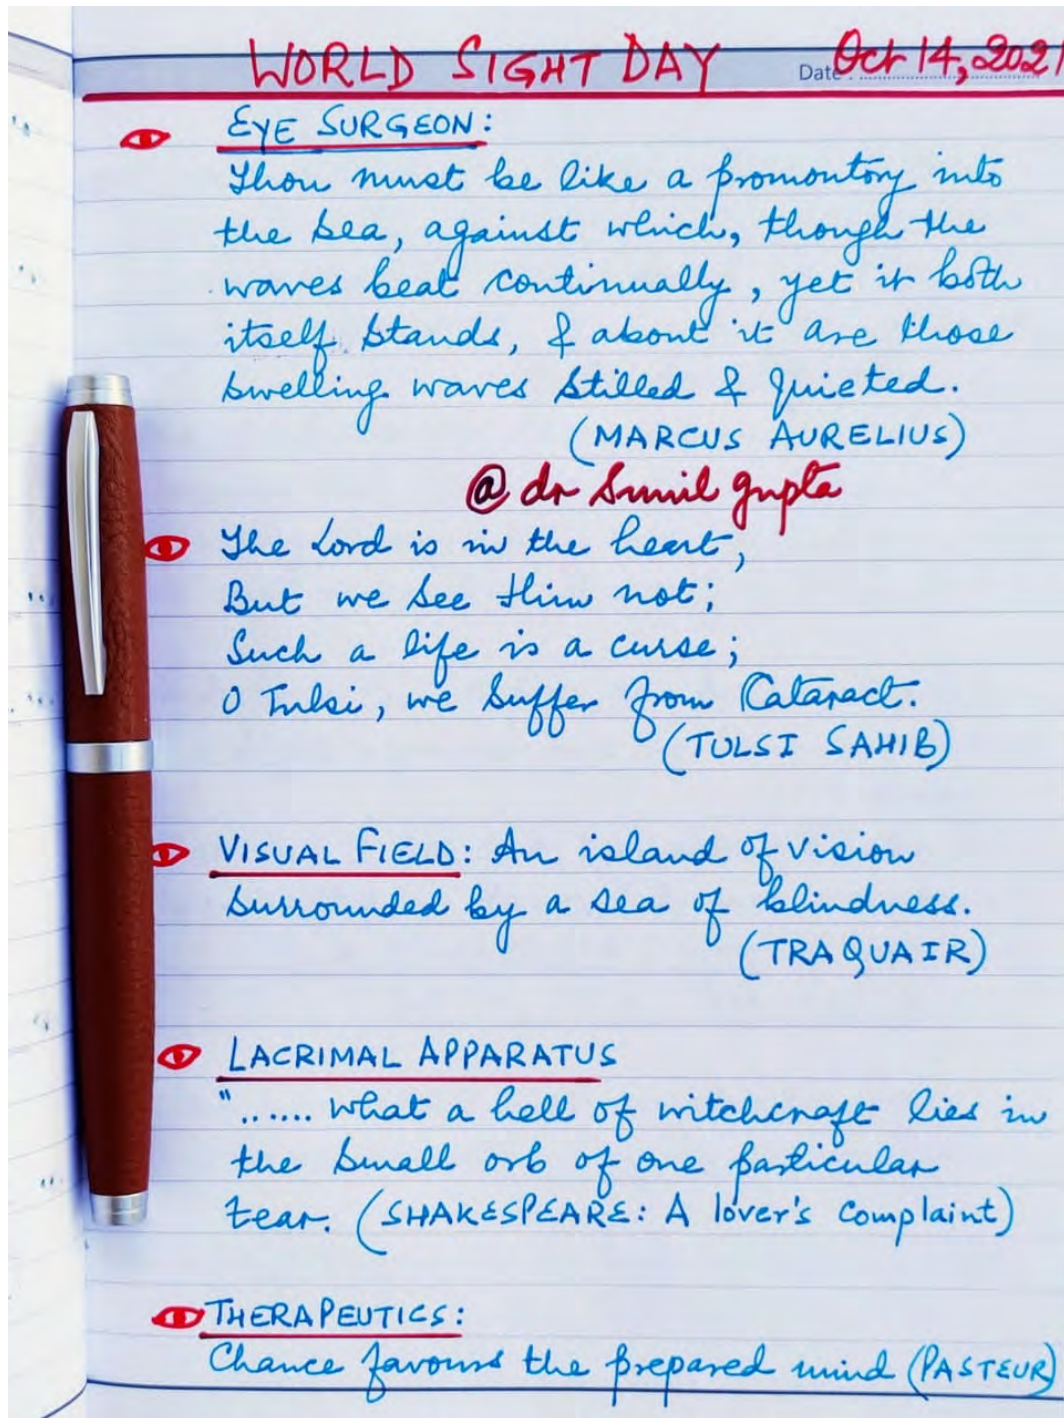 WORLD SIGHT DAY Date Oct 14, 2021
EYE SURGEON:
Thou must be like a promontory into
the sea, against which, though the
waves beat continually, yet it both
itself stands, & about it are those
swelling waves stilled & quieted.
(MARCUS AURELIUS)
@ dr Sunil gupta
The Lord is in the heart,
But we see Him not;
Such a life is a curse;
O Tulsi, we suffer from Cataract.
(TULSI SAHIB)
VISUAL FIELD: An island of vision
surrounded by a sea of blindness.
(TRAQUAIR)
LACRIMAL APPARATUS
"...... what a hell of witchcraft lies in
the small orb of one particular
tear. (SHAKESPEARE: A lover's complaint)
THERAPEUTICS:
Chance favours the prepared mind (PASTEUR)